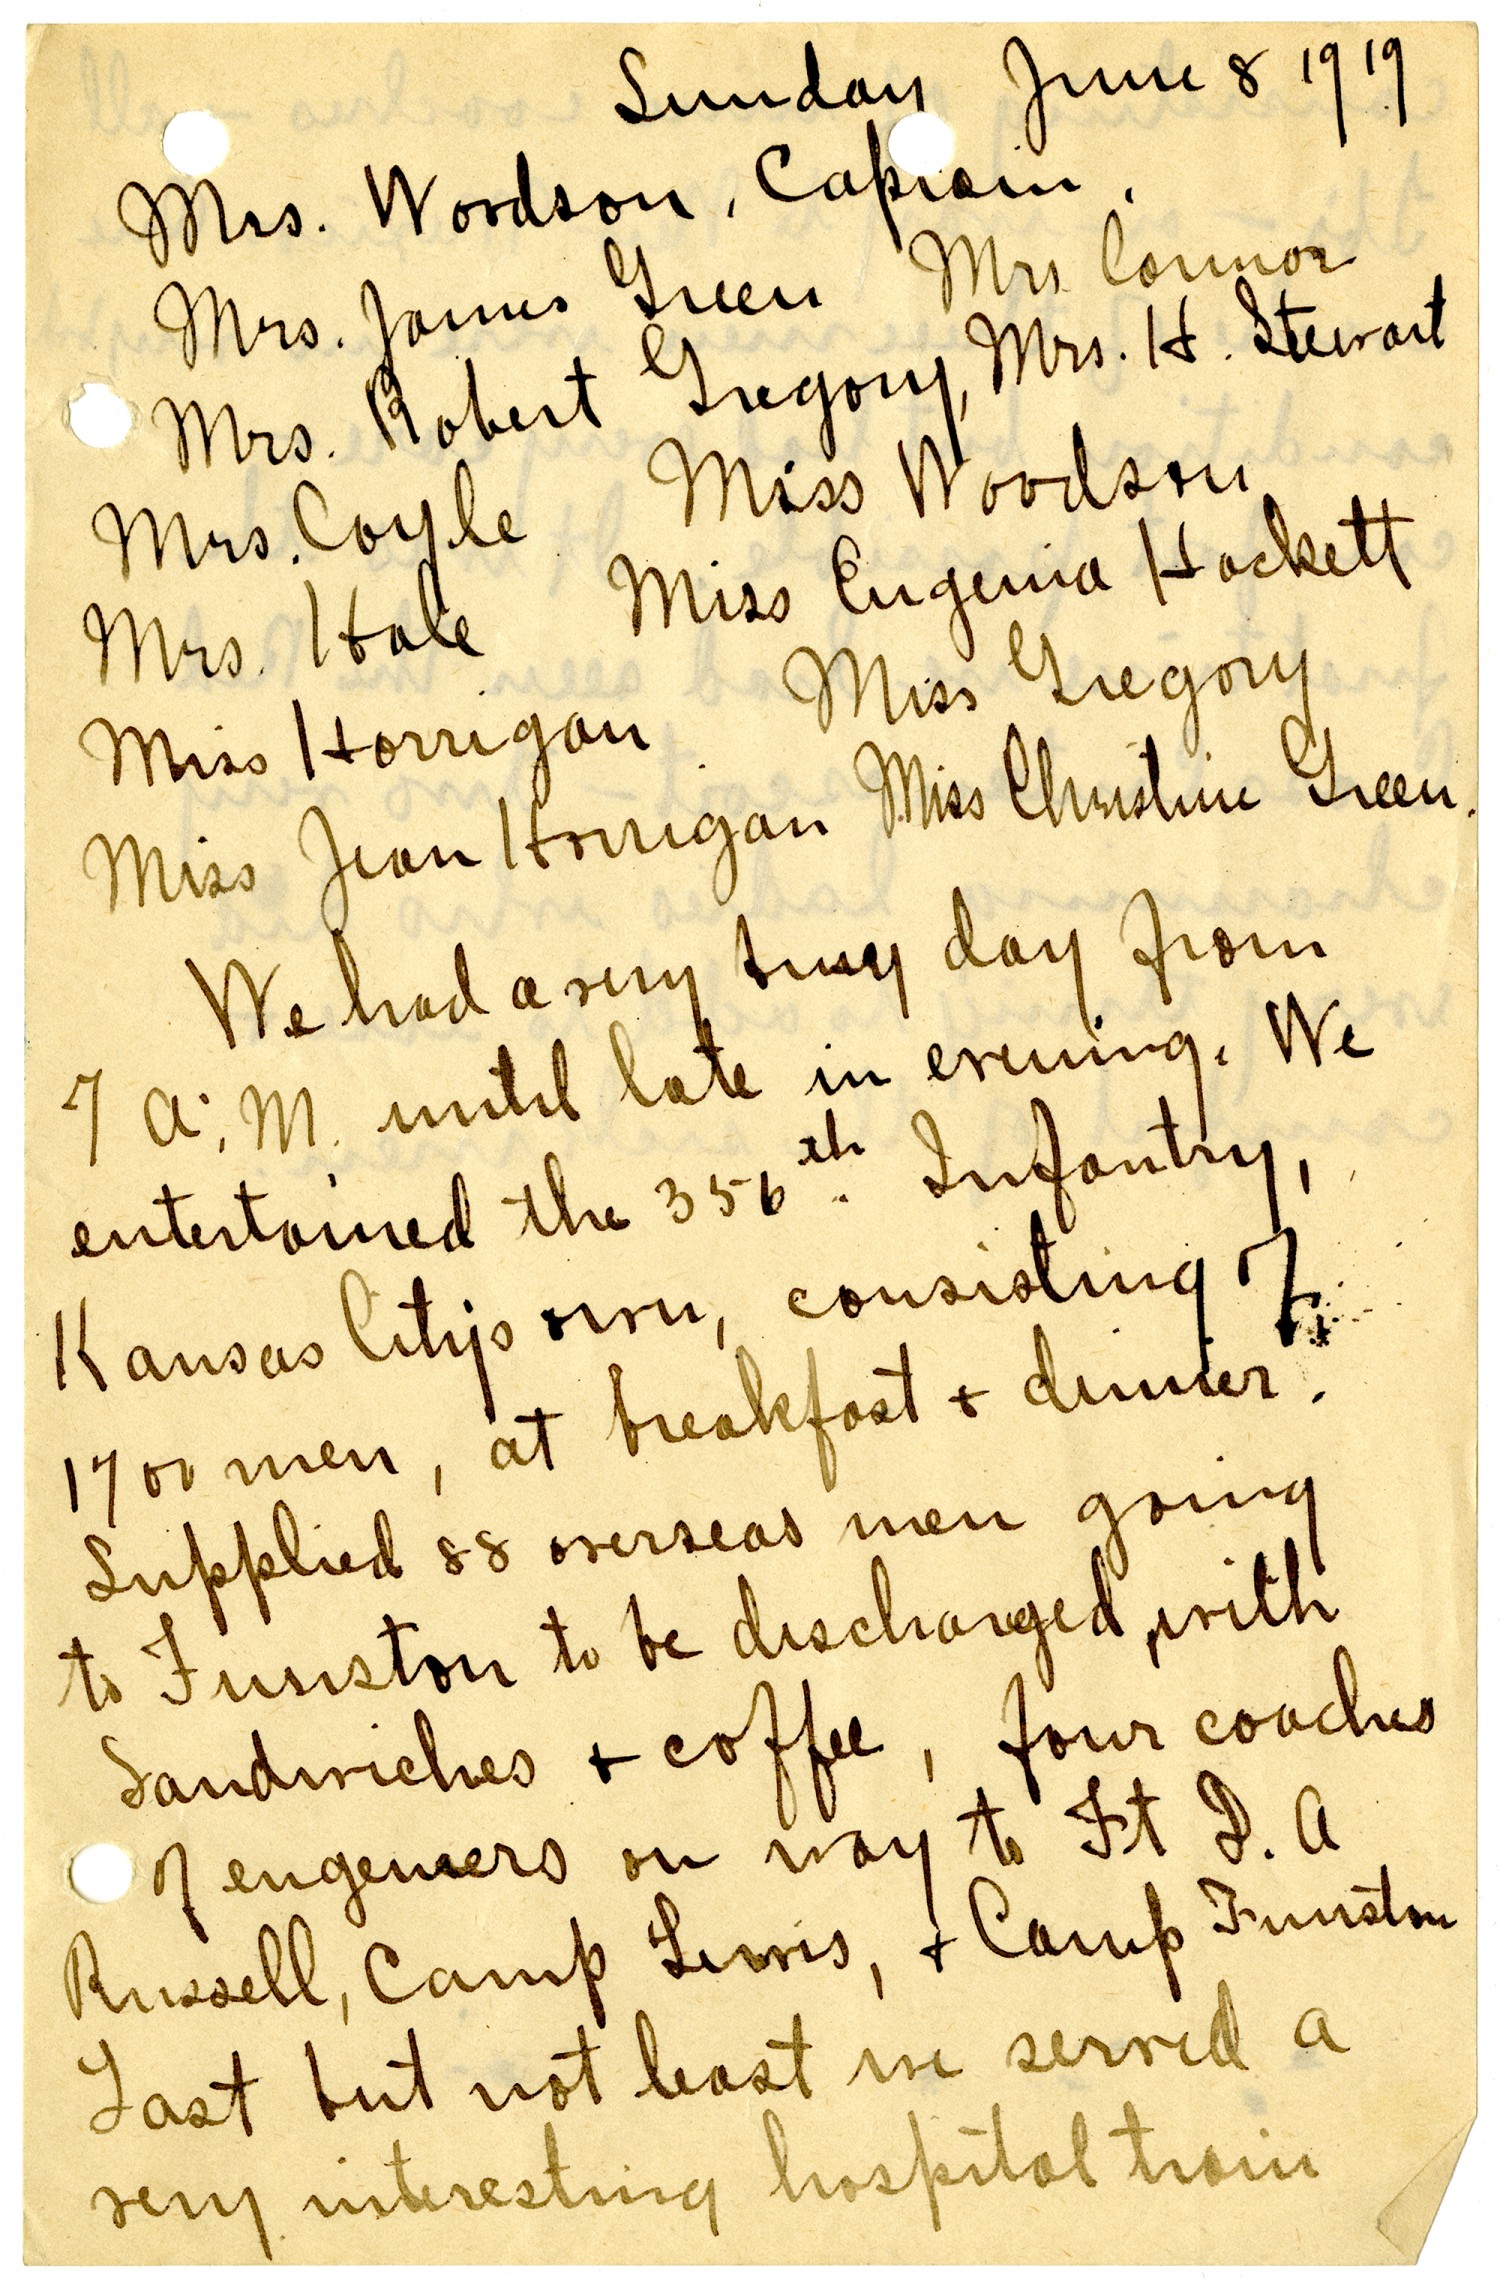 Sunday June 8 1919
Mrs. Woodson, Captain.
Mrs. James Green Mrs Connor
Mrs. Robert Gregory, Mrs. H. Stewart
Mrs. Coyle Miss Woodson
Mrs. Hale Miss Eugenia Hackett
Miss Horrigan Miss Gregory
Miss Jean Horrigan Miss Christine Green.
We had a very busy day from
7 A.M. until late in evening. We
entertained the 356th. Infantry,
Kansas City's own, consisting of
1700 men, at breakfast + dinner.
Supplied 88 overseas men going
to Funston to be discharged, with
Sandwiches + coffee, four coaches
of engeneers on way to Ft D. A
Russell, Camp Lewis, + Camp Funston
Last but not least we served a
very interesting hospital train